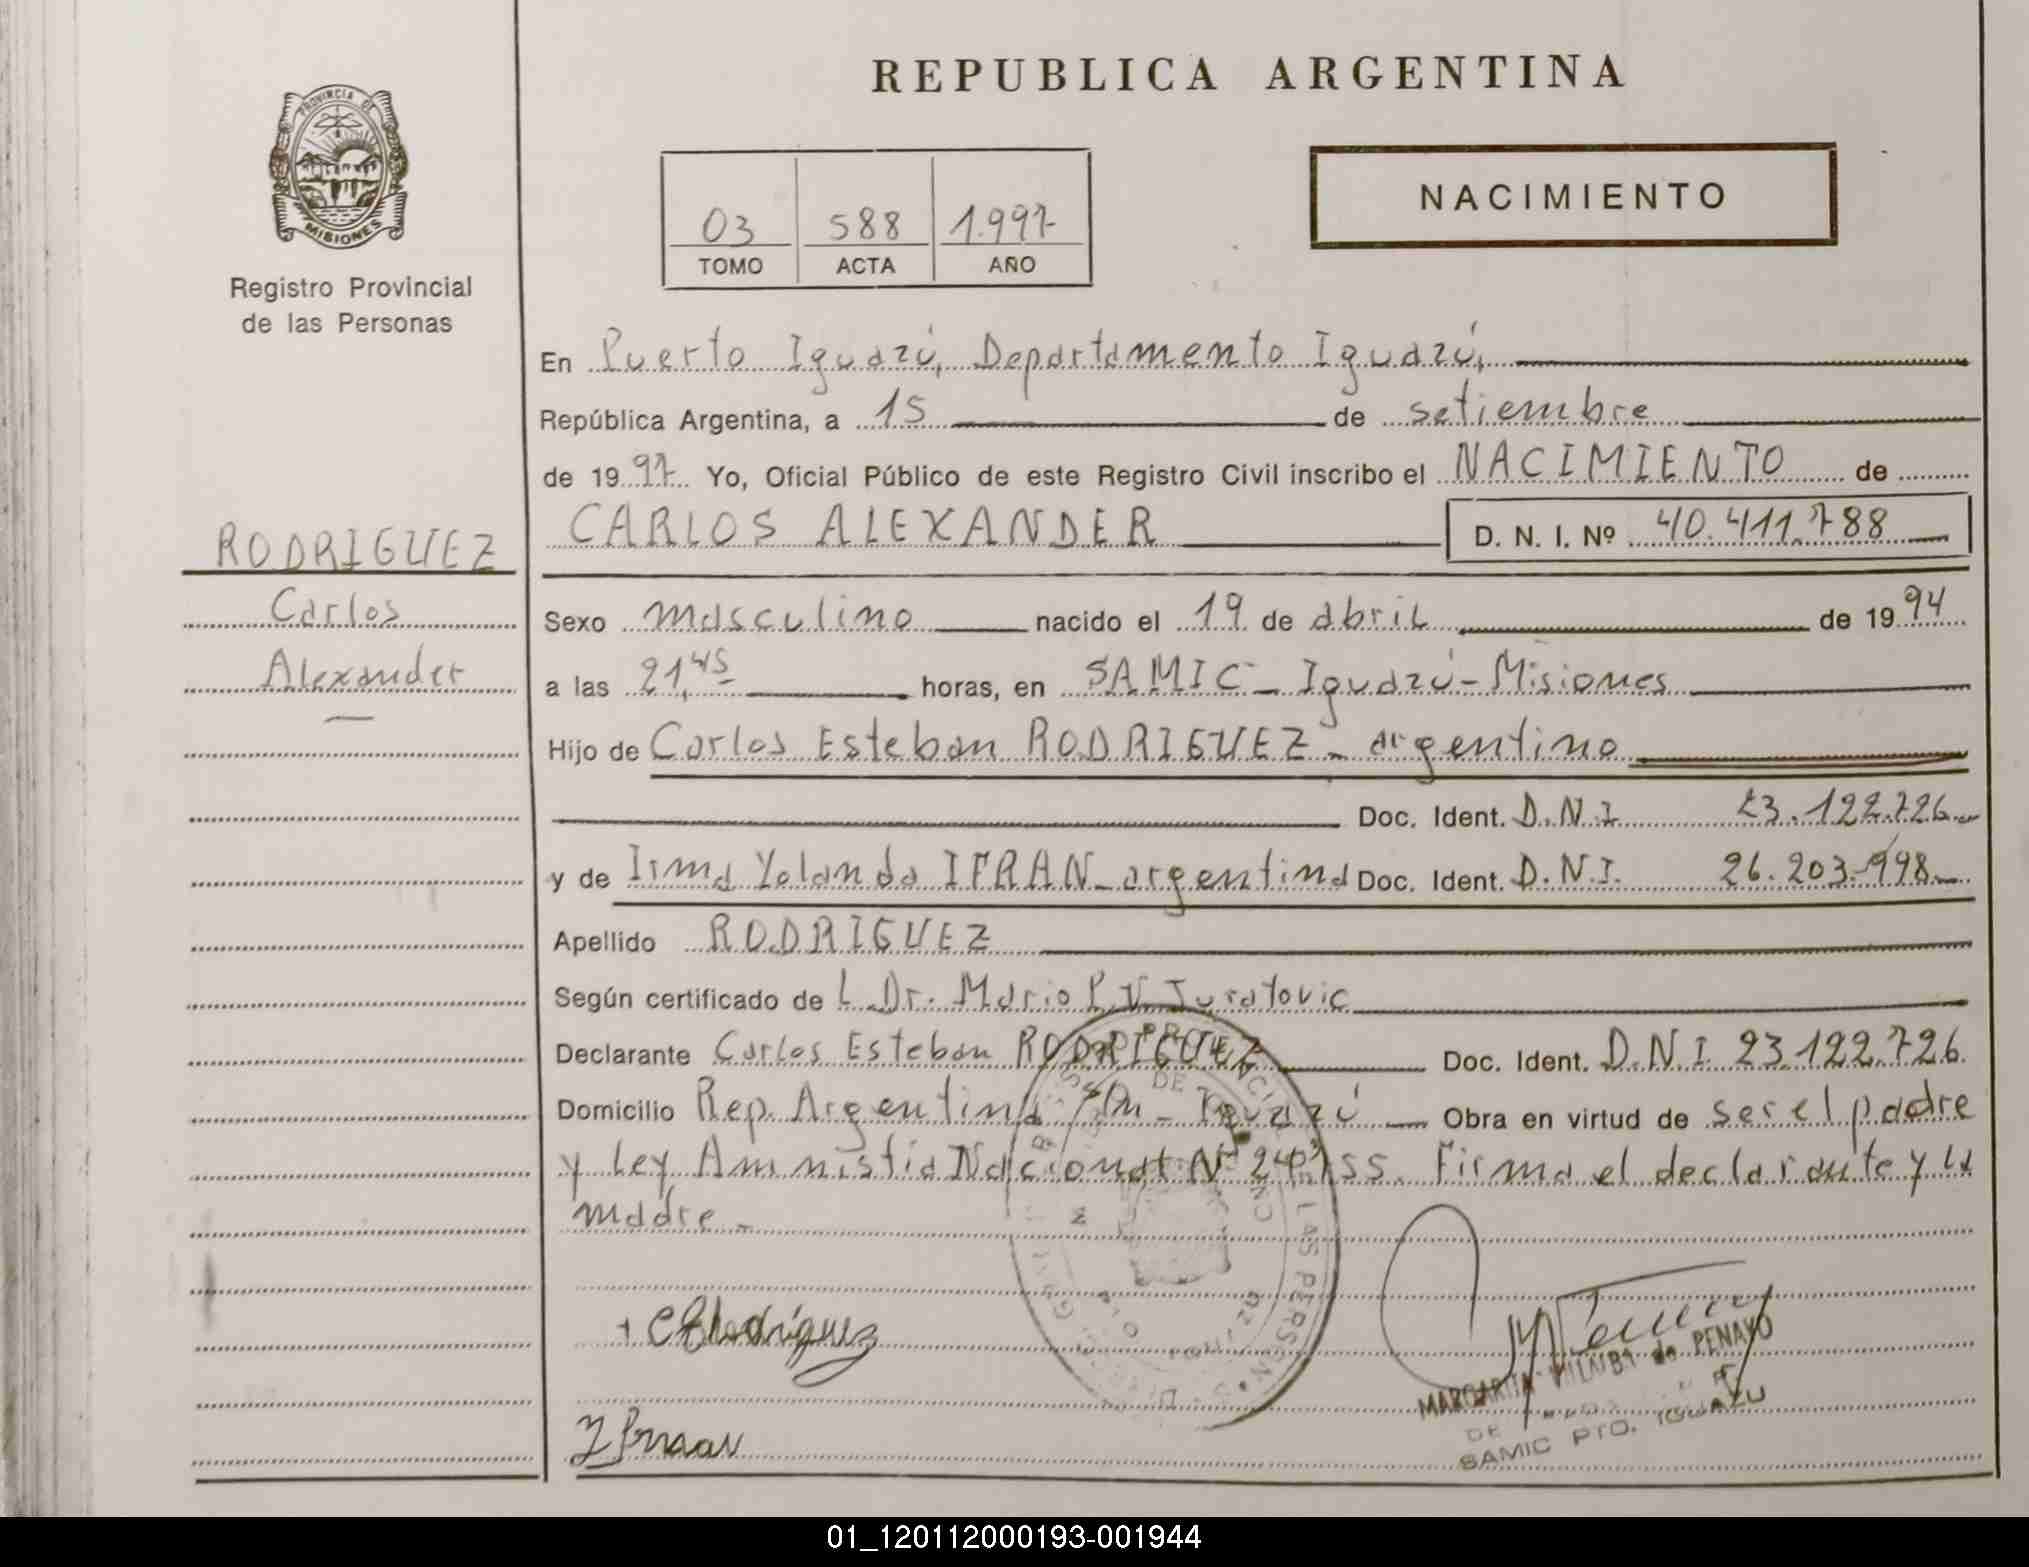 REPUBLICA ARGENTINA
PROVINCIA DE
MISIONES
Registro Provincial
de las Personas
NACIMIENTO
03 588 1.997
TOMO ACTA AÑO
En Puerto Iguazú, Departamento Iguazú,
República Argentina, a 15 de setiembre
de 1997 Yo, Oficial Público de este Registro Civil inscribo el NACIMIENTO de
CARLOS ALEXANDER D. N. I. Nº 40.411.788
RODRIGUEZ
Carlos
Alexander
Sexo masculino nacido el 19 de abril de 1994
a las 21,45 horas, en SAMIC - Iguazú - Misiones
Hijo de Carlos Esteban RODRIGUEZ - argentino
Doc. Ident. D.N.I 23.122.726.-
y de Irma Yolanda IFRAN - argentina Doc. Ident. D.N.I. 26.203.998.-
Apellido RODRIGUEZ
Según certificado de L Dr. Mario P.V. Juratovic
Declarante Carlos Esteban RODRIGUEZ Doc. Ident. D.N.I. 23.122.726.
Domicilio Rep. Argentina S/n - Iguazú Obra en virtud de ser el padre
y Ley Amnistia Nacional Nº 24755. Firma el declarante y la
madre -
CERodriguez
MARGARITA VILALBA de PENAYO
DE
SAMIC PTO. IGUAZU
DE LAS PERSONAS
01_120112000193-001944